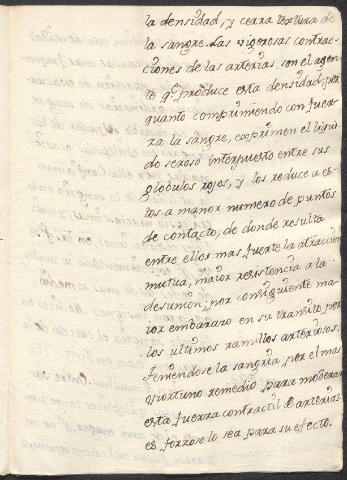 la densidad, y cerra textura de
la sangre. Las vigorosas contrac-
ciones de las arterias son el agen-
te q.e produce esta densidad: por
quanto comprimiendo con fuer-
za la sangre, exprimen el liqui-
do seroso interpuesto entre sus
globulos rojos, y los reduce a es-
tos a manor numero de puntos
de contacto, de donde resulta
entre ellos mas fuerte la atraccion
mutua, maior resistencia a la
desunion; por consiguiente ma-
ior embarazo en su transito por
los ultimos ramillos arteriosos.
Teniendose la sangria por el mas
oportuno remedio para moderar
esta fuerza contractil de arterias
es forzoso lo sea para su efecto.